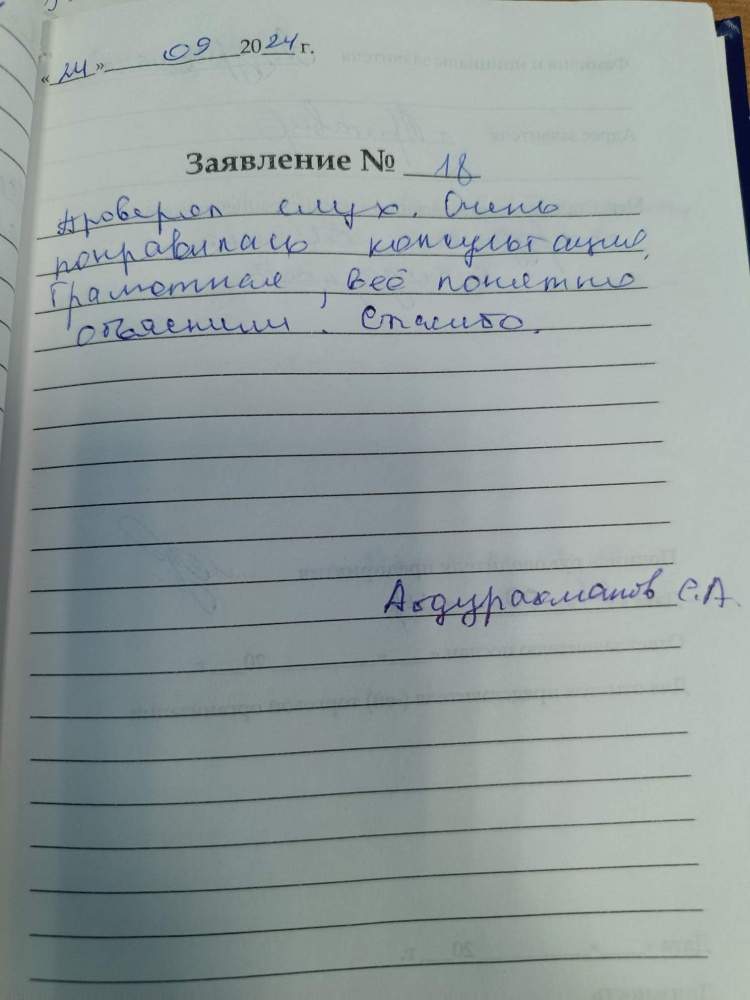 «24» 09 2024 г.
Заявление № 18
Проверял слух. Очень
понравилась консультация,
Грамотная, всё понятно
объяснили. Спасибо.
Абдурахманов С.А.